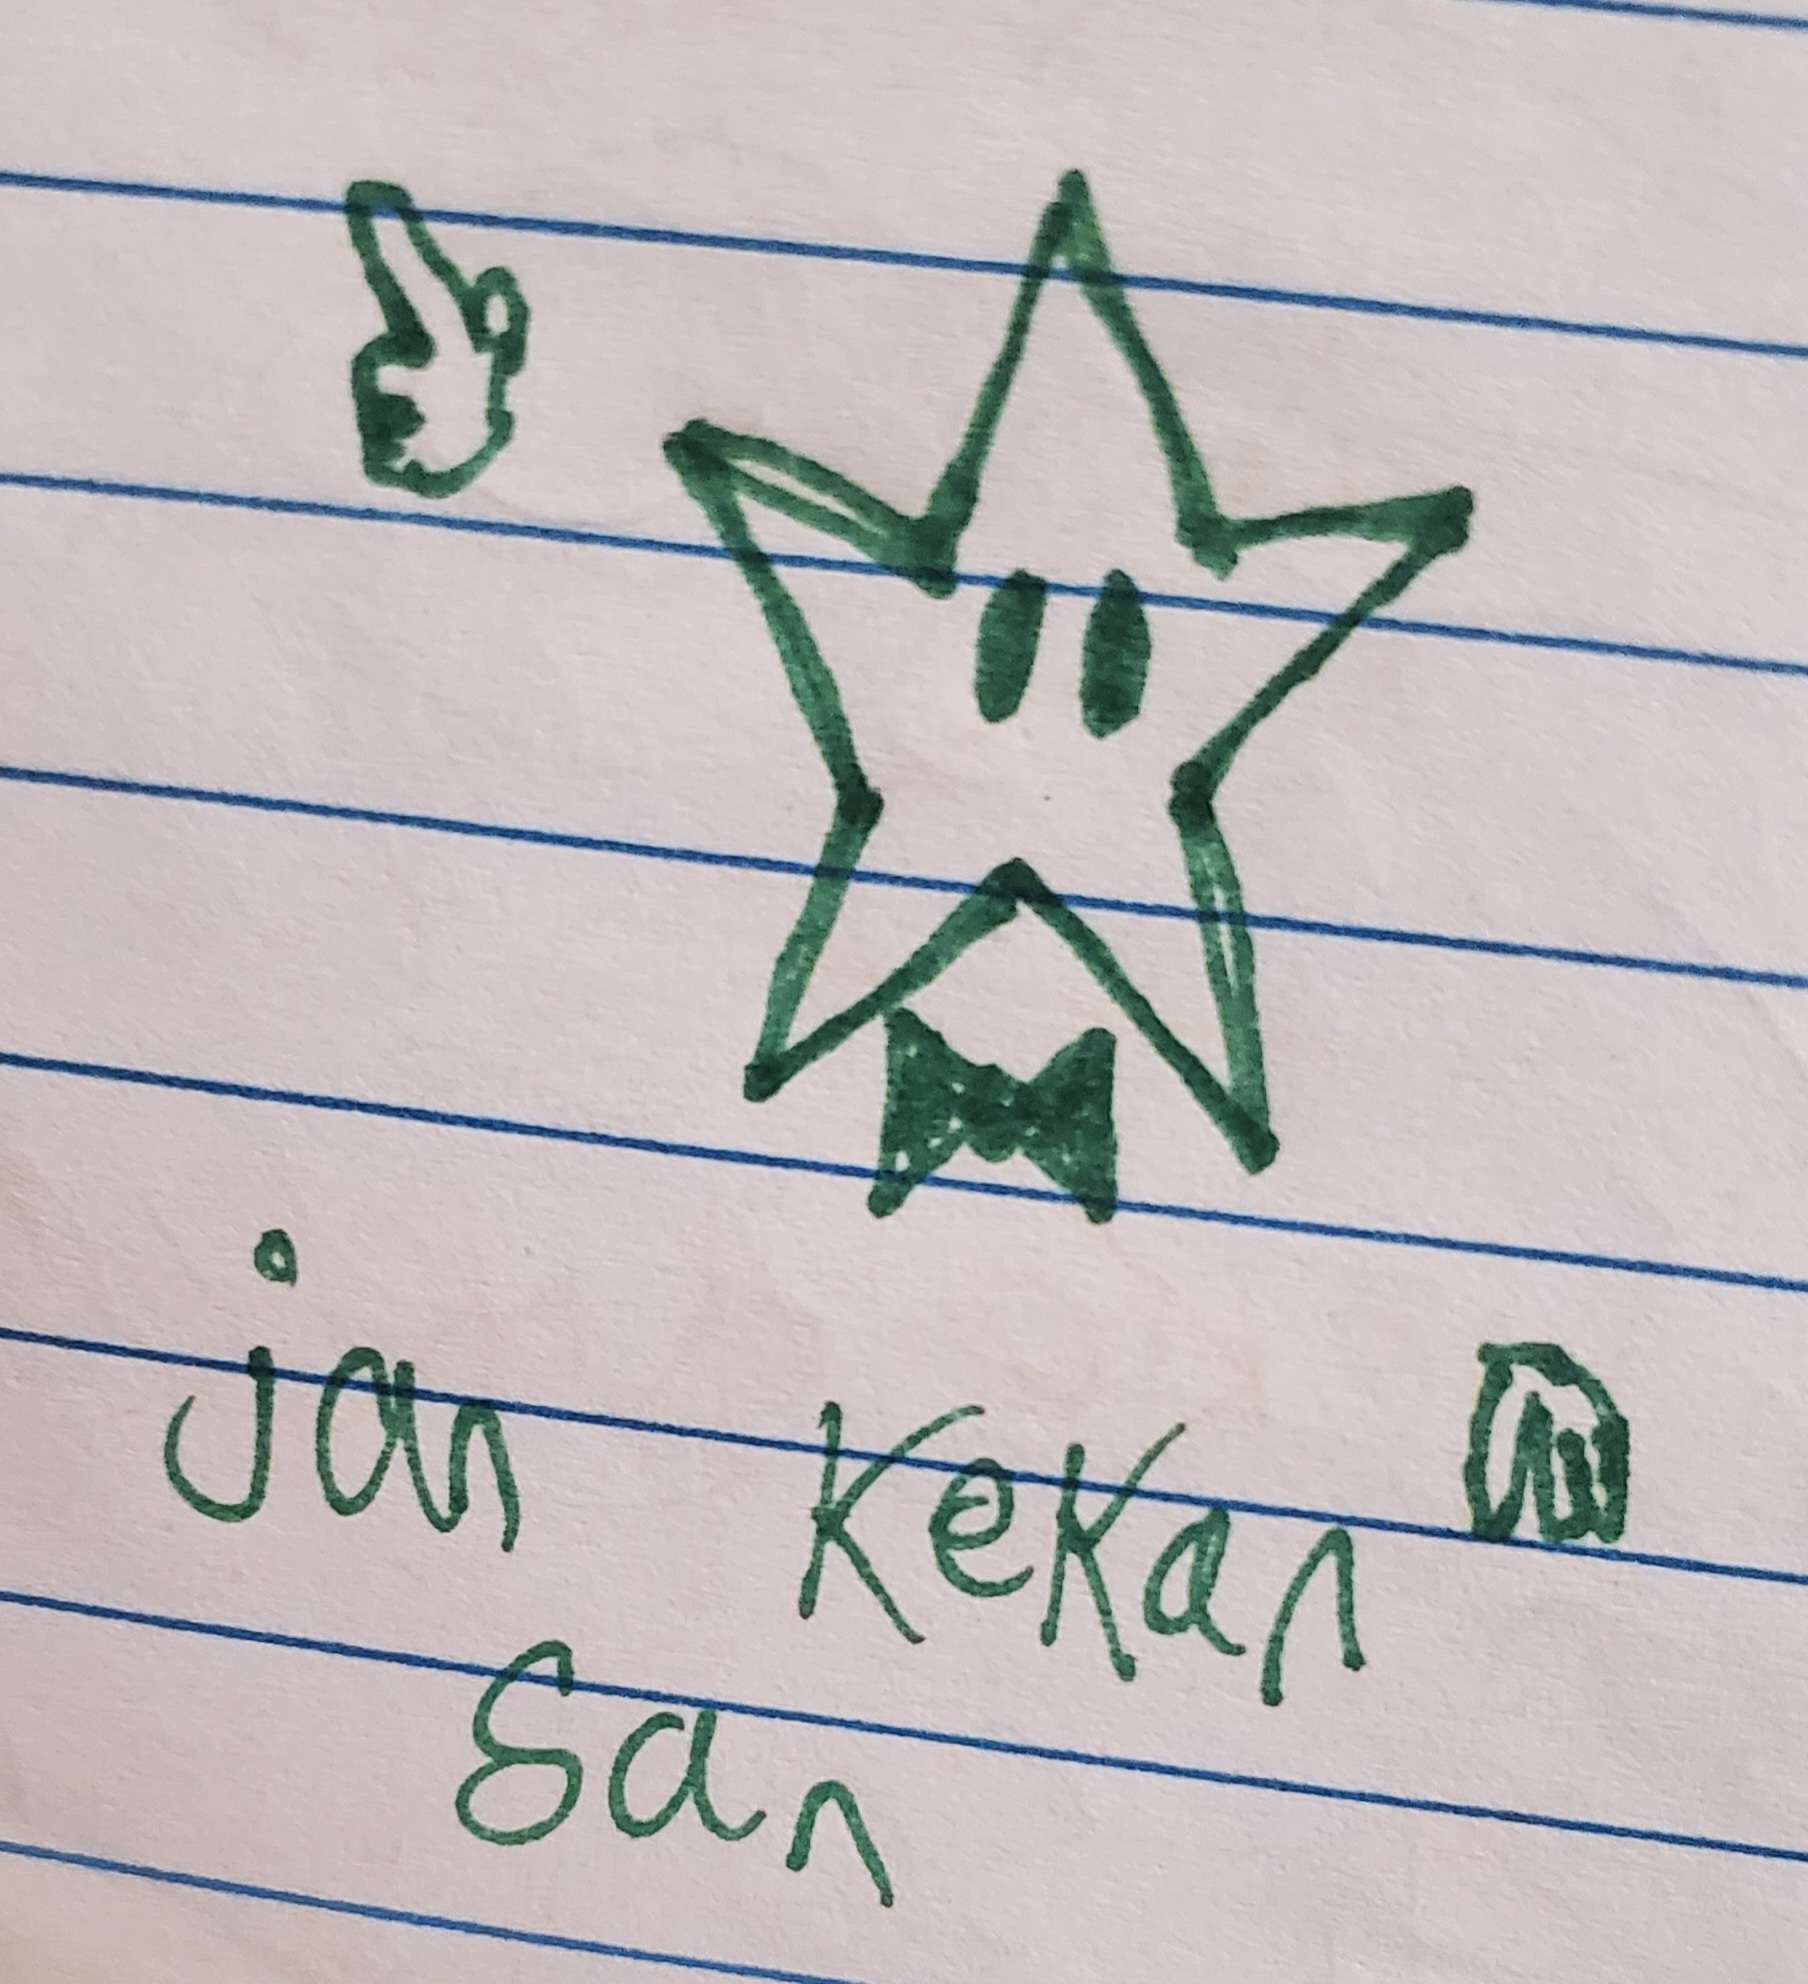 jan KeKan
San